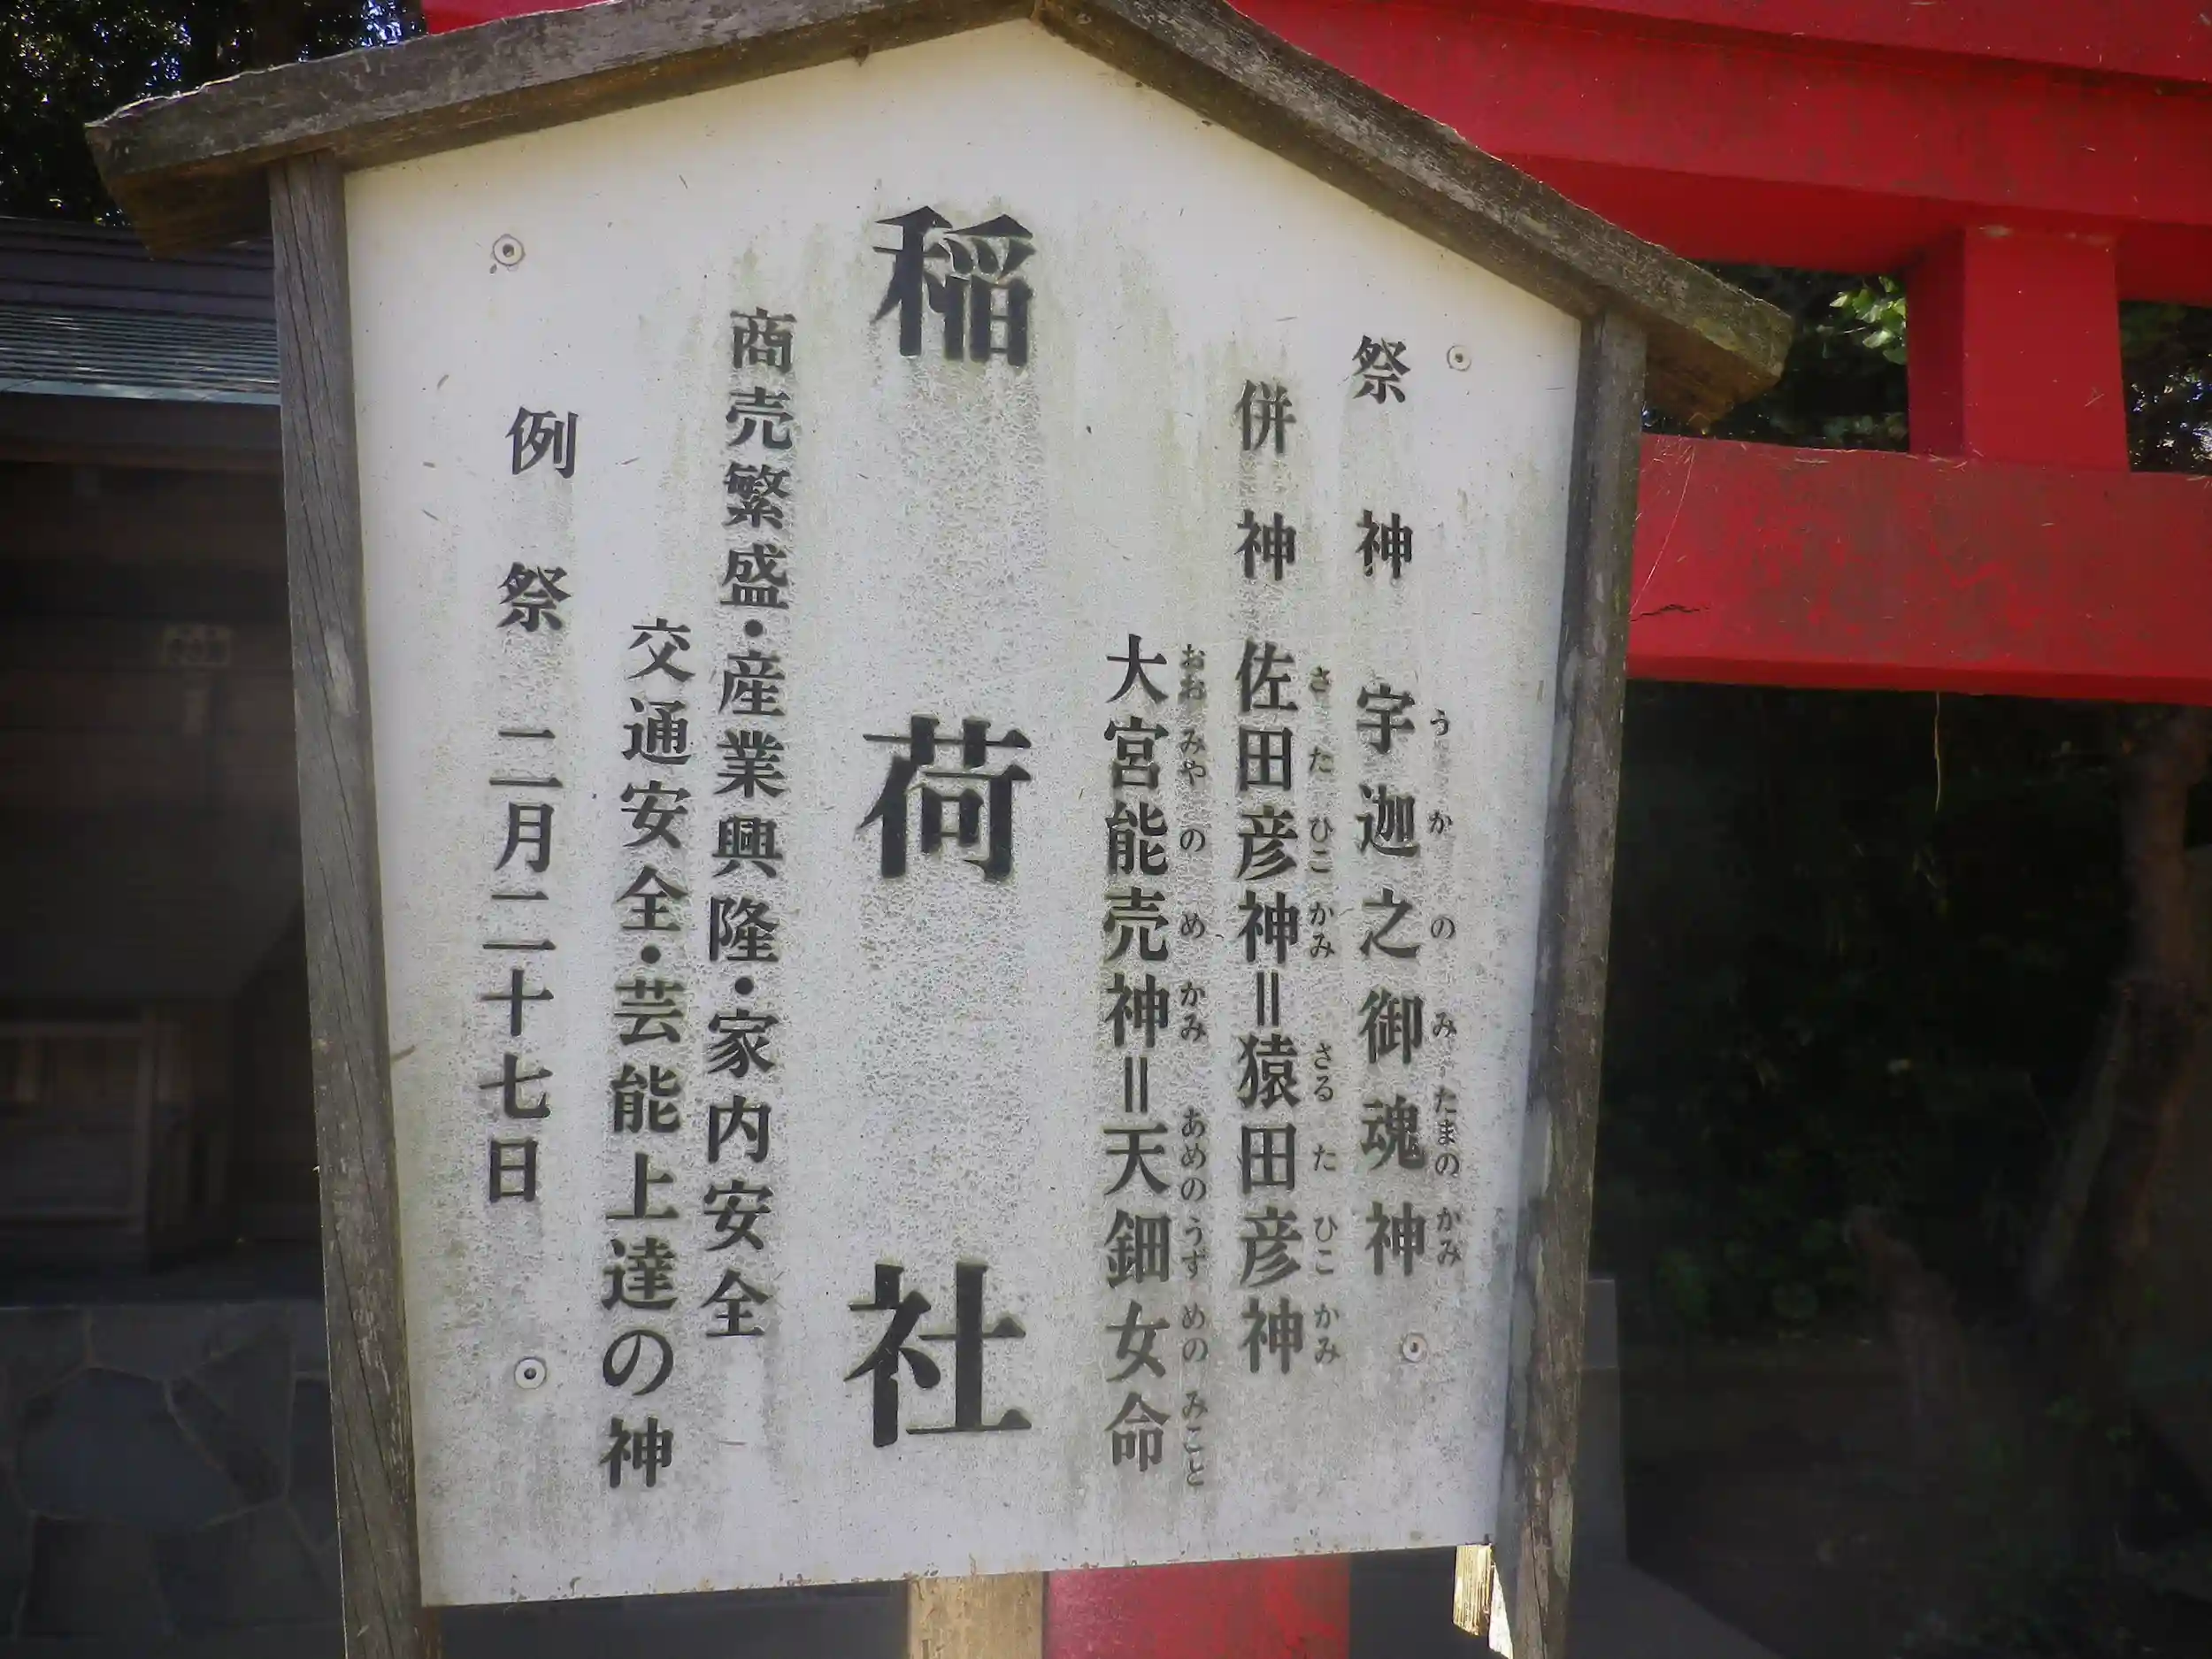 祭神 宇迦之御魂神
うかのみたまのかみ
併神 佐田彦神=猿田彦神
さたひこかみ さるたひこかみ
大宮能売神=天鈿女命
おおみやのめかみ あめのうずめのみこと
稲荷社
商売繁盛・産業興隆・家内安全
交通安全・芸能上達の神
例祭 二月二十七日